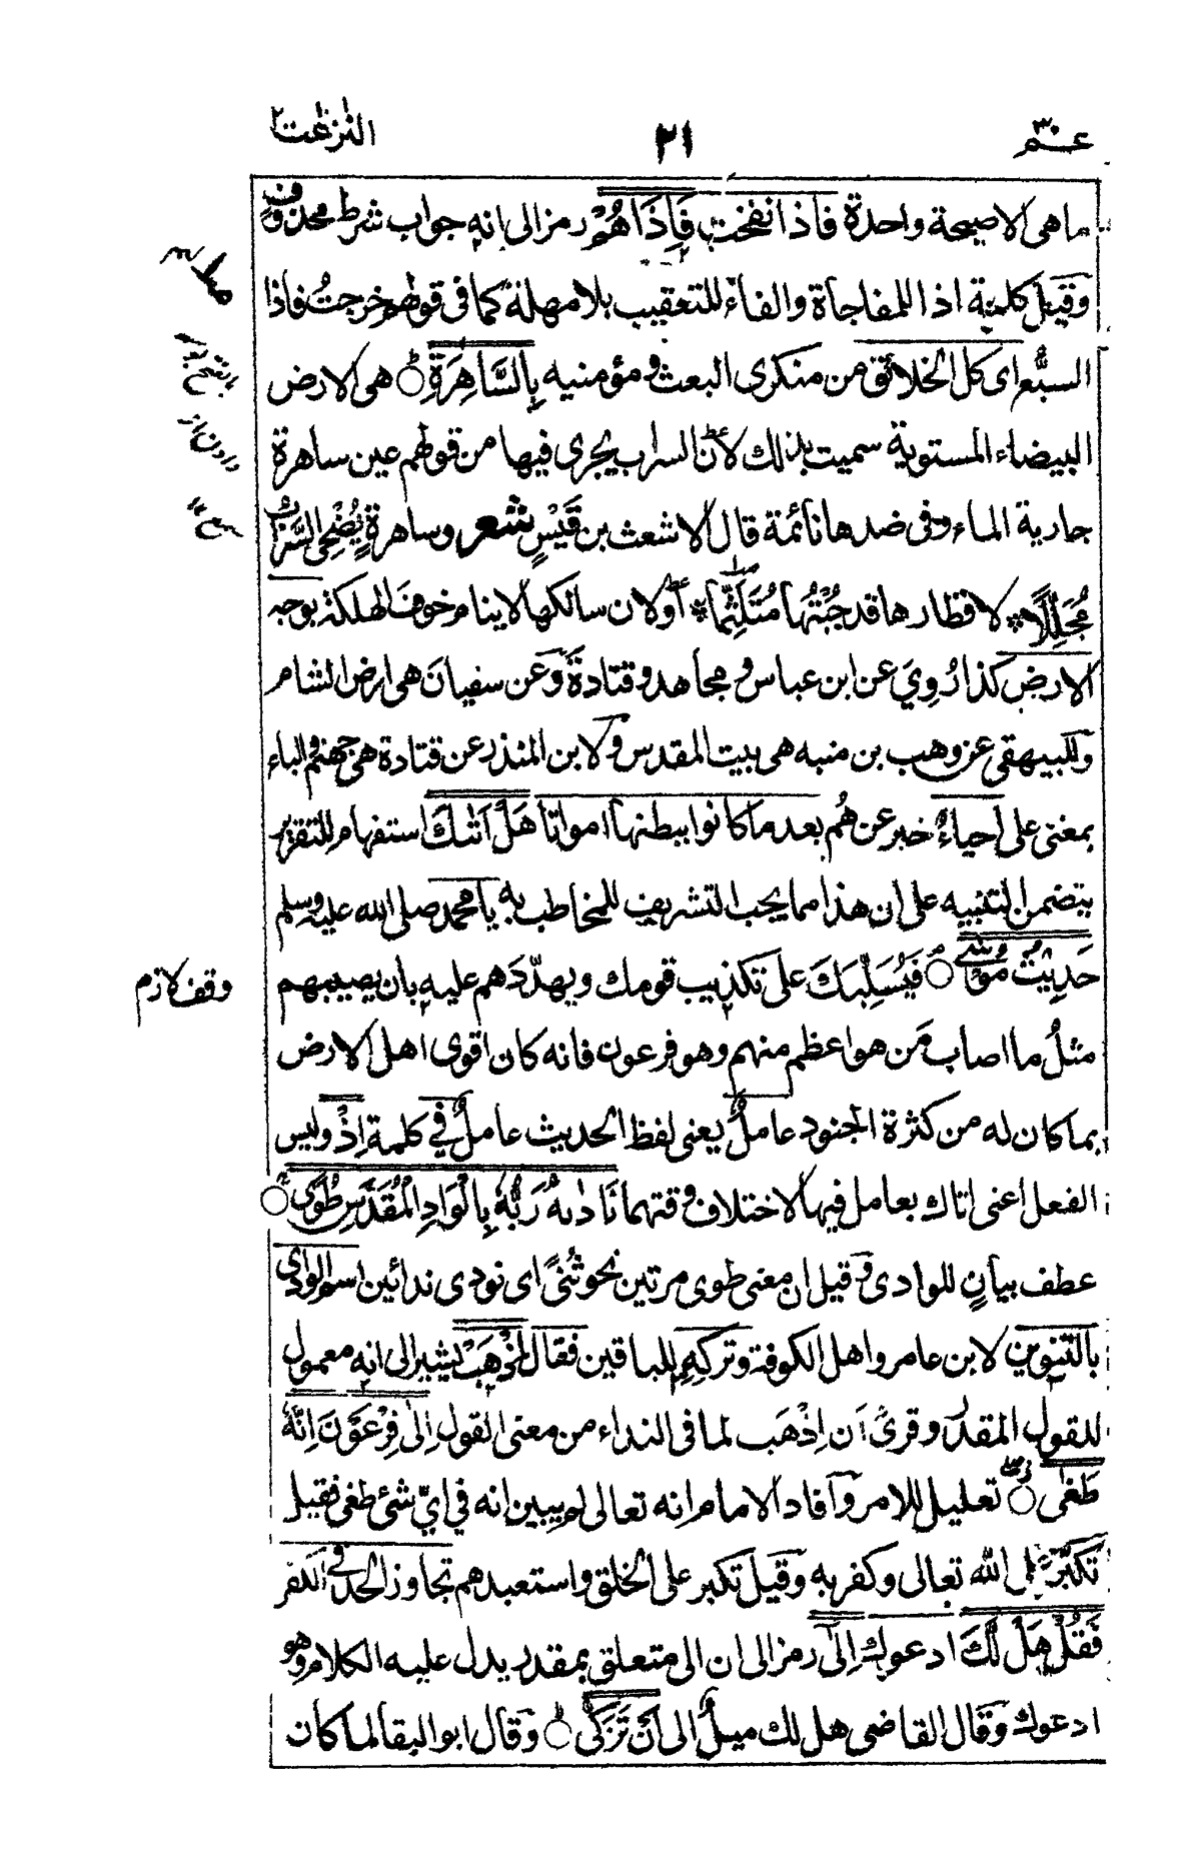 عـــم ٣٠
٢١
النزعت
ما هى الا صيحة واحدة فاذا نفخت فَإِذَا هُمْ رمز الى انه جواب شرط محذوف
وقيل كلمة اذا للمفاجاة والفاء للتعقيب بلا مهلة كما فى قولهم خرجتُ فاذا
السبُعُ اى كل الخلائق من منكرى البعث ومؤمنيه بِالسَّاهِرَةِ هى الارض
البيضاء المستوية سميت بذلك لأن السراب يجرى فيها من قولهم عين ساهرة
جارية الماء وفى ضدها نائمة قال الاشعث بن قَيْسٍ شعر وساهرةٍ يُضْحِى السَّرَابُ
مُجَلِّلًا * لاقطارها قد جُبْتُها مُتَلَثِّمًا * أو لان سالكها لا ينام خوفَ الهلكة بوجه
الارض كذا رُوِيَ عن ابن عباس ومجاهد وقتادة وعن سفيان هى ارض الشام
وللبيهقى عن وهب بن منبه هى بيت المقدس ولابن المنذر عن قتادة هى جهنم والباء
بمعنى على احياءٌ خبر عن هُم بعد ما كانوا ببطنها امواتا هَلْ اَتٰىكَ استفهام للتقرير
يتضمن التنبيه على ان هذا مما يجب التشريف للمخاطب به يا محمد صلى الله عليه وسلم
حَدِيْثُ مُوْسٰى فَيُسَلِّيكَ على تكذيب قومك ويهدّدَهم عليه بأن يصيبهم
مثلُ ما اصاب مَن هو اعظم منهم وهو فرعون فانه كان اقوى اهل الارض
بما كان له من كثرة الجنود عاملٌ يعنى لفظ الحديث عاملٌ في كلمة اِذْ وليس
الفعل اعنى اتاك بعامل فيها لاختلاف وقتهما نَادٰىهُ رَبُّهُ بِالْوَادِ الْمُقَدَّسِ طُوًى
عطف بيانٍ للوادى وقيل ان معنى طوى مرتين نحو ثُنىً اى نودى ندائين اسم الوادى
بالتنوين لابن عامر واهل الكوفة وتركِهِ للباقين فقال اذْهَبْ يشير الى انه معمول
للقول المقدر وقرئ أن اِذْهَب لما فى النداء من معنى القول اِلٰى فِرْعَوْنَ اِنَّهٗ
طَغٰى تعليل للامر وأفاد الامام انه تعالى لم يبين انه في ايّ شئ طغى فقيل
تكبَّر على الله تعالى وكفر به وقيل تكبر على الخلق واستعبدهم تجاوز الحد فى الكفر
فَقُلْ هَلْ لَّكَ ادعوك اِلٰى رمز الى ان الى متعلق بمقدر يدل عليه الكلام وهو
ادعوك وقال القاضى هل لك ميلٌ الى أَنْ تَزَكّٰى وقال ابو البقا لما كان
وقف لازم